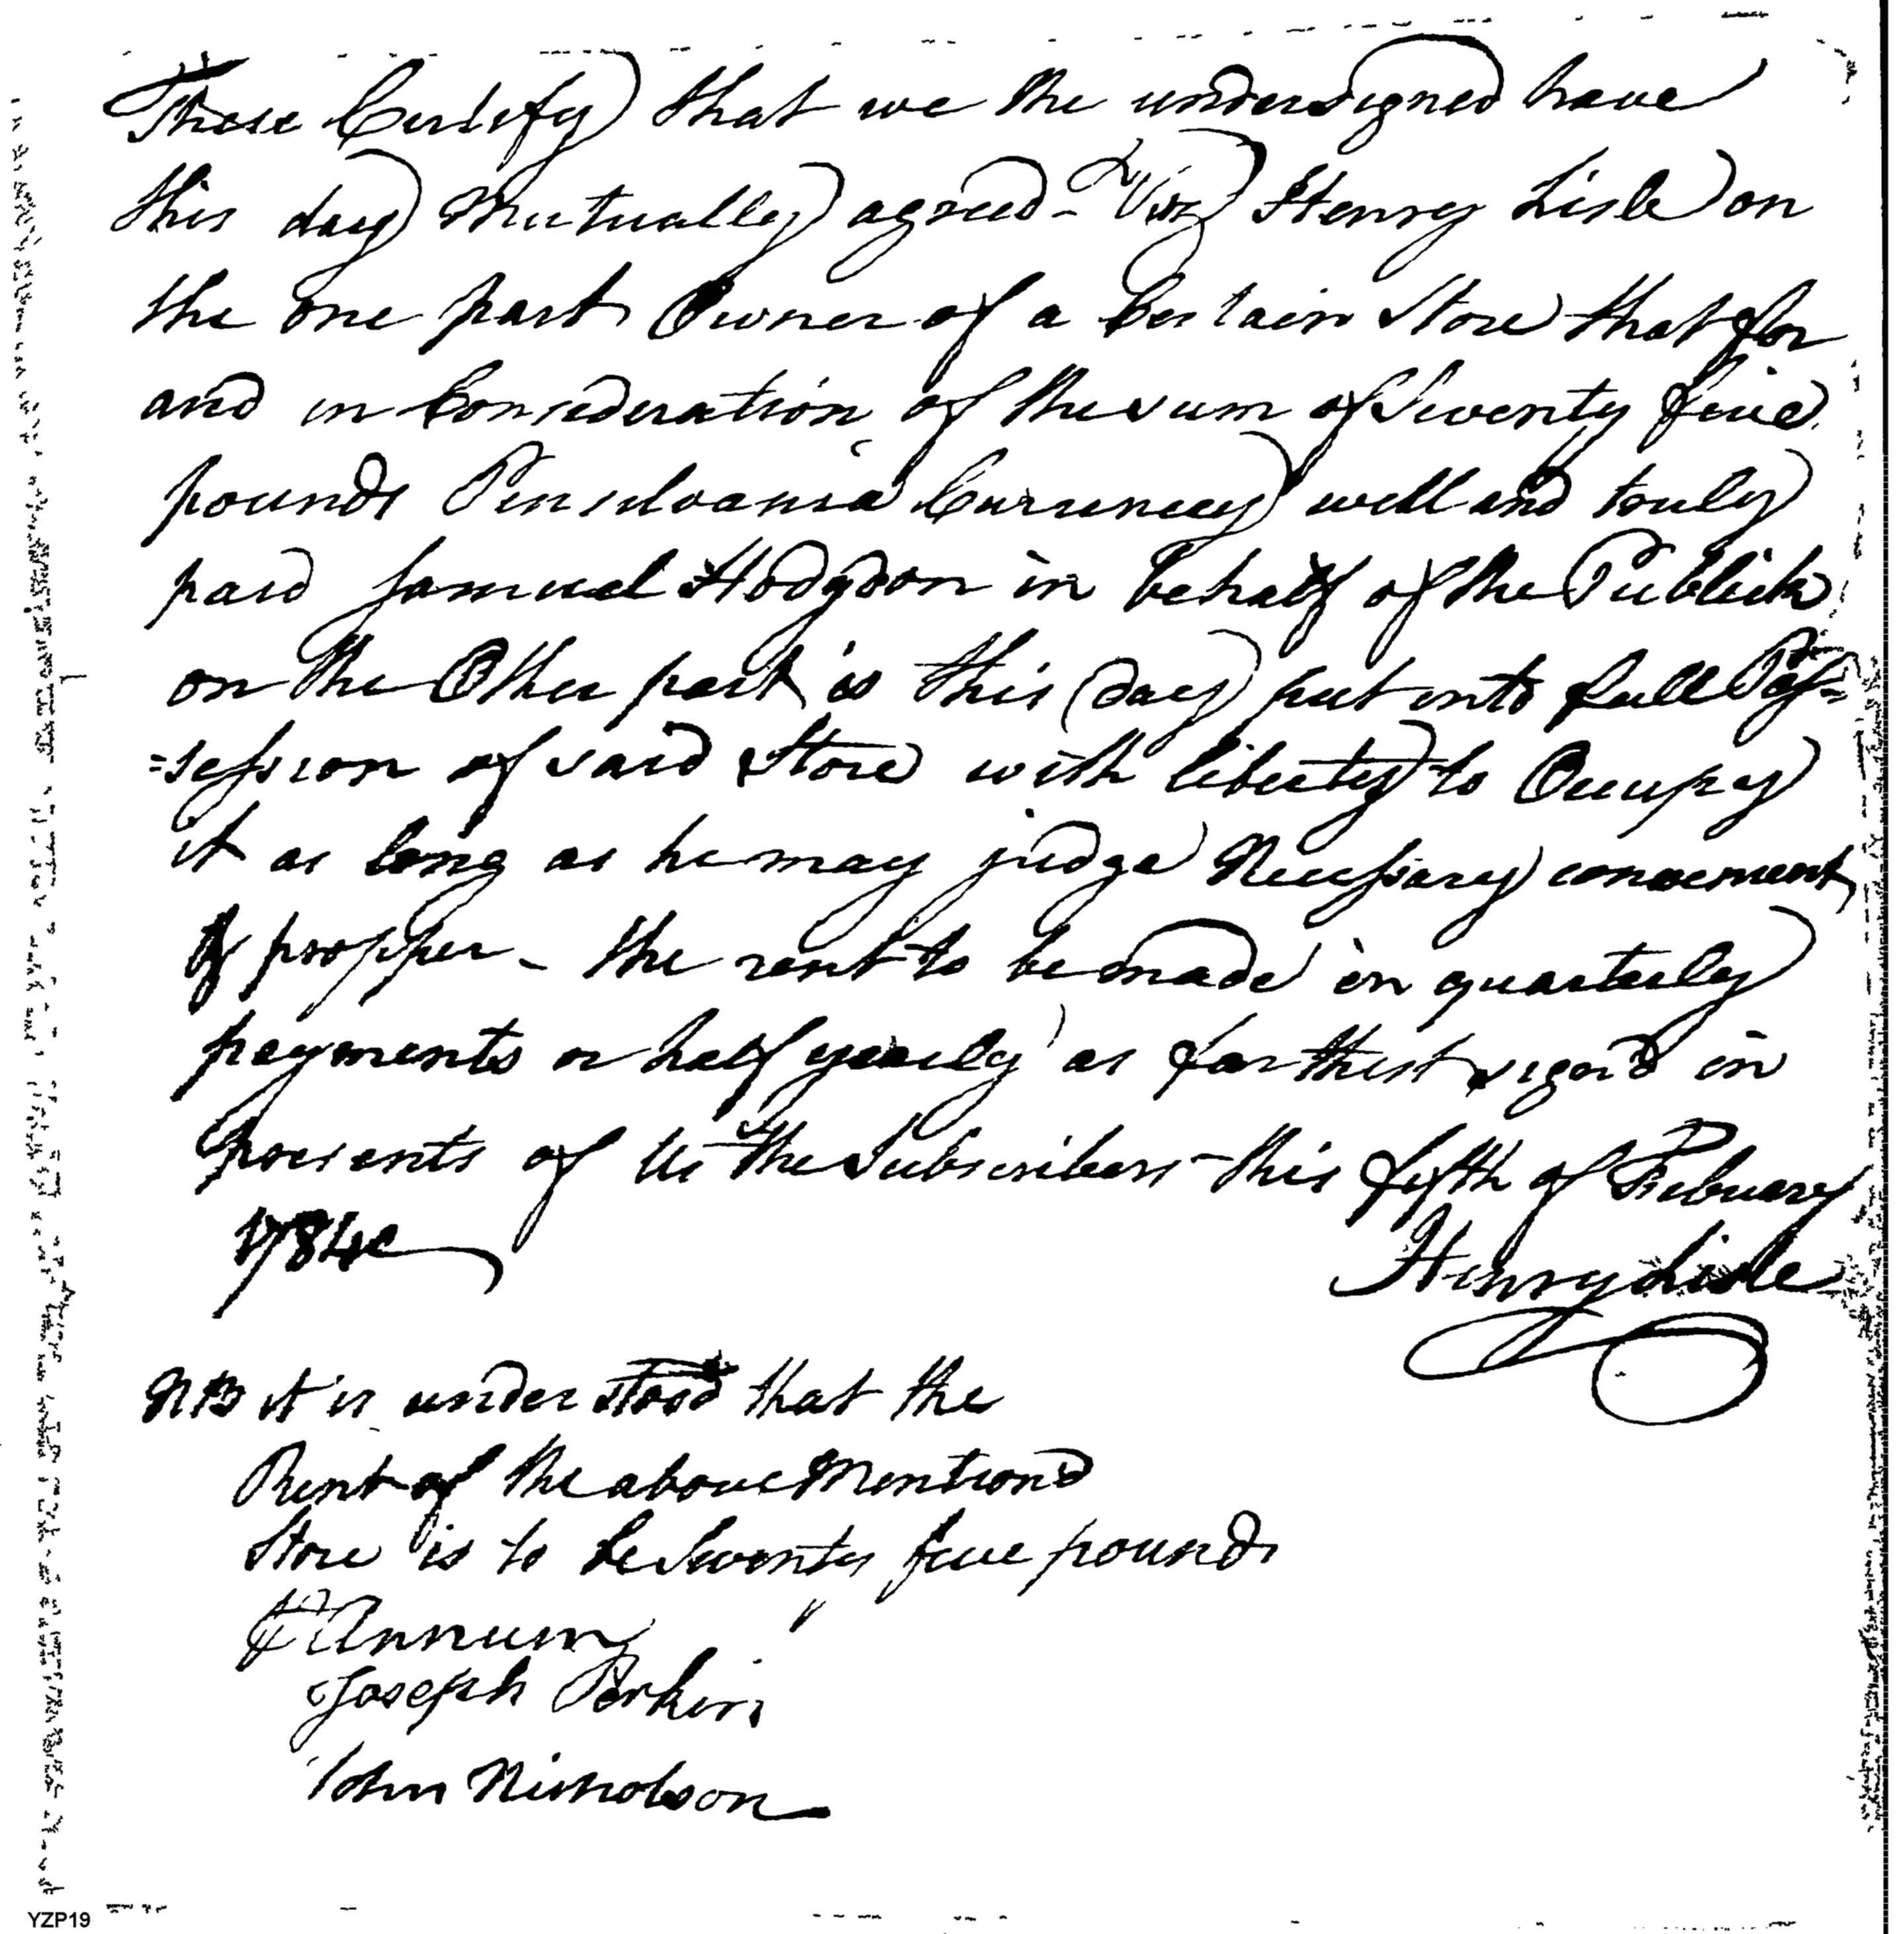 These Certify that we the undersigned have
this day Mutually agreed - Viz Henry Lisle on
the one part Owner of a Certain Store that for
and in Consideration of the sum of Seventy five
pounds Pensilvania Currency well and truly
paid Samuel Hodgdon in behalf of the Publick
on the Other part is this day put into full Pos=
=session of said Store with liberty to Occupy
it as long as he may judge Necessary convenient
& propper - the rent to be made in quarterly
payments or half yearly as farthest sign'd in
presents of Us the Subscribers - this fifth of Febuary
1784
Henry Lisle
NB it is understood that the
Rent of the above Mention'd
Store is to be Seventy five pounds
⅌ Annum
Joseph Perkins
John Nicholson
YZP19